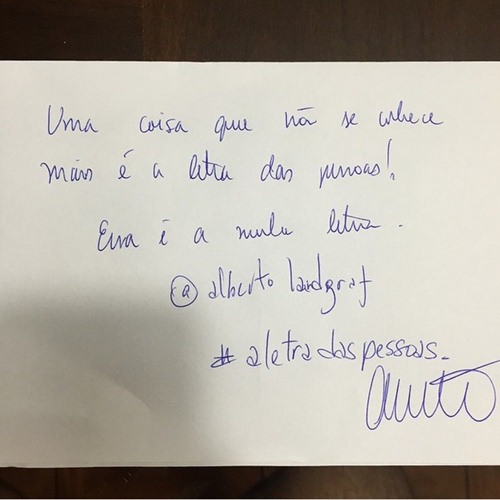 Uma coisa que não se conhece
mais é a letra das pessoas!
Essa é a minha letra.
@ alberto landgraf
# aletradaspessoas.